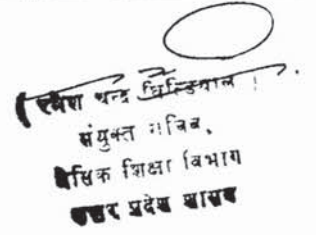 (रमेश चन्द्र घिल्डियाल ।
संयुक्त सचिव,
बेसिक शिक्षा विभाग
उत्तर प्रदेश शासन